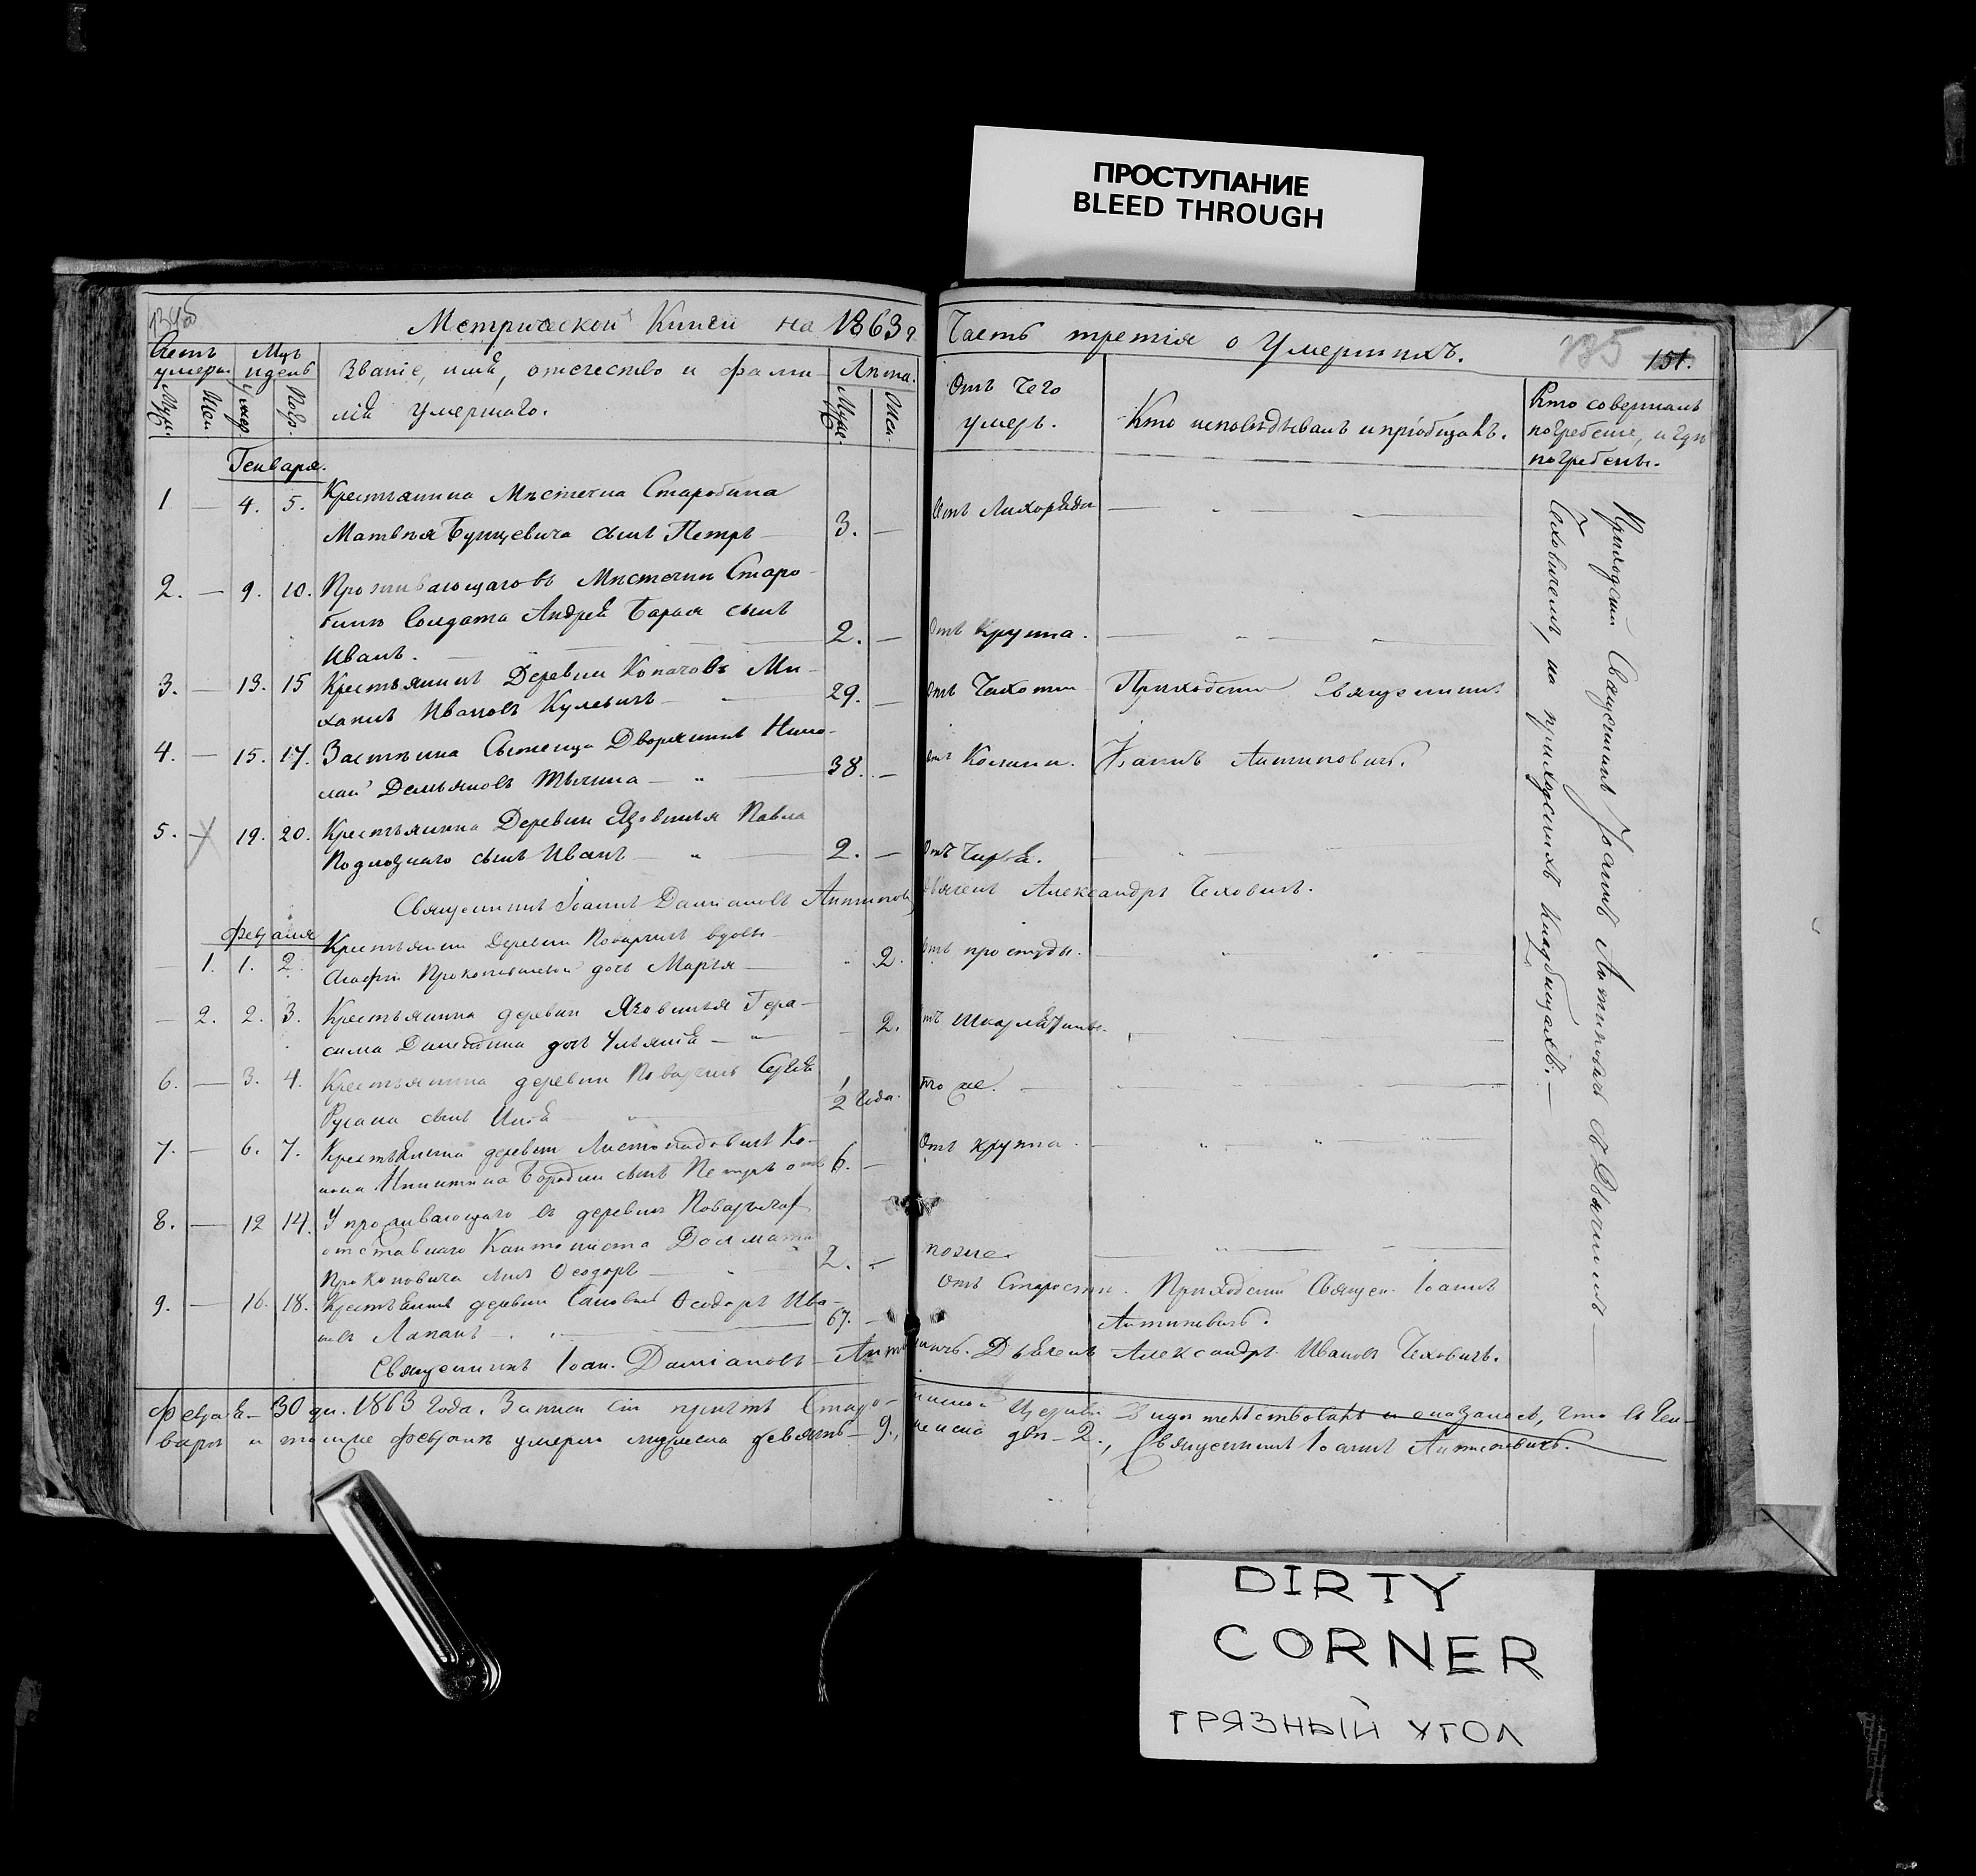 ПРОСТУПАНИЕ
BLEED THROUGH
Метрической Книги на 1863 г.
Часть третія о Умершихъ.
135 151.
Счетъ умерш.
Муж.
Жен.
Мцъ и день
Умер.
Погр.
Званіе, имя, отчество и фами-
лія умершаго.
Лѣта.
Муж.
Жен.
Отъ чего
умеръ.
Кто исповѣдывалъ и пріобщалъ.
Кто совершалъ
погребеніе, и гдѣ
погребены.
Генваря.
1 — 4. 5. Крестьянина Мѣстечка Старобина
Матвѣя сынъ Петръ — 3. — Отъ Лихорадки
2. — 9. 10. Проживающаго въ Мѣстечкѣ Старо-
бинѣ Солдата Андрея сынъ
Иванъ. — 2. — Отъ Крупа.
3. — 13. 15 Крестьянинъ Деревни Копачовъ Ми-
хаилъ Ивановъ Кулевичъ — 29. — Отъ Чахотки Приходскій Священникъ
4. — 15. 17. Застѣнка Дворянинъ Нико-
лай Демьяновъ — 38. — Отъ Іоаннъ Антиповичъ.
5. — 19. 20. Крестьянина Деревни Язовинья Павла
сынъ Иванъ — 2. — Отъ Чирья.
Священникъ Іоаннъ Даміановъ Антиповичъ
Дьячекъ Александръ Чеховичъ.
Февраля
— 1. 1. 2. Крестьянки Деревни вдовы
Агафіи дочь Марья — 2. Отъ простуды.
— 2. 2. 3. Крестьянина деревни Язовинья Гера-
сима дочь Ульянія — 2. Отъ Шкарлатины.
6. — 3. 4. Крестьянина деревни Сергѣя
Русака сынъ Илія 1/2 года. То же.
7. — 6. 7. Крестьянина деревни Листопадовичъ Ко-
нона сынъ Петръ 6. — Отъ крупа.
8. — 12 14. У проживающаго въ деревнѣ
отставнаго Кантониста
Прокоповича сынъ Ѳеодоръ — 2. — тоже.
9. — 16. 18. Крестьянинъ деревни Ѳеодоръ Ива-
новъ Лапанъ — 67. — Отъ Старости. Приходскій Священ. Іоаннъ
Антиповичъ.
Священникъ Іоан. Даміановъ Антиповичъ. Дьячекъ Александръ Ивановъ Чеховичъ.
Приходскій Священникъ Іоаннъ Антиповичъ съ Дьячкомъ —
Чеховичемъ, на приходскихъ кладбищахъ. —
Февраля 30 дн. 1863 года. Записи сіи причтъ Старо-
бинской Церкви свидѣтельствовалъ и оказалось, что въ Ген-
варѣ и Февралѣ умерло мужеска девять — 9., женска двѣ — 2., Священникъ Іоаннъ Антиповичъ.
DIRTY
CORNER
ГРЯЗНЫЙ УГОЛ